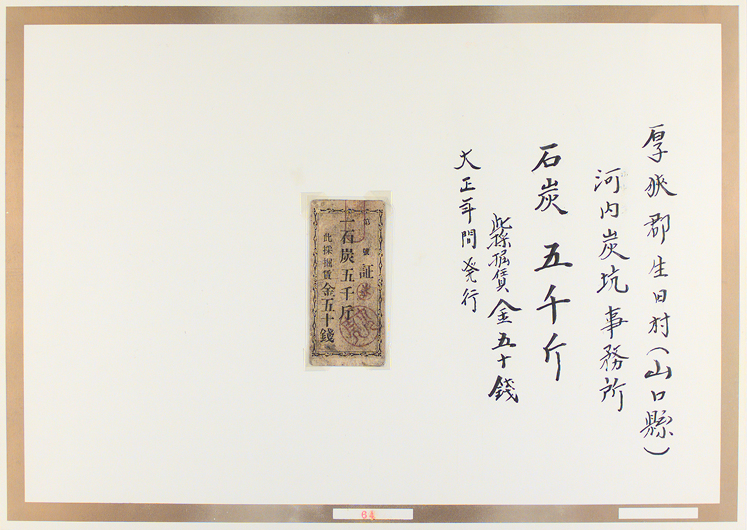 厚狹郡生田村(山口縣)
河内炭坑事務所
石炭五千斤
此採掘賃金五十錢
大正年間発行
第 號
証
一石炭五千斤
此採掘賃金五十錢
64